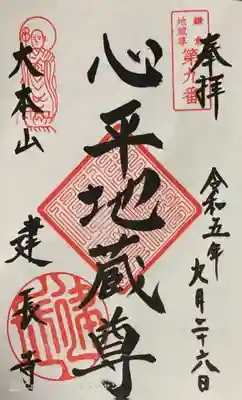 奉拝
鎌倉
地蔵尊
第九番
令和五年九月二十六日
心平地蔵尊
大本山
建長寺